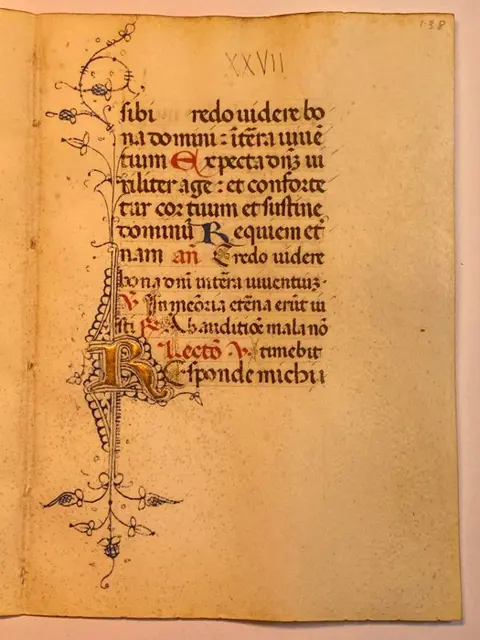 138
XXVII
sibi redo uidere bo
na domini : ītēra uiuē
tium Expecta dn̄z ui
riliter age : et conforte
tur cor tuum et sustine
dominū Requiem et
nam añ Credo uidere
bona dn̄i intēra uiuentiuz.
℣ In memōria etēna erūt iu
sti ℟ Ab auditiōe mala nō
Lectō ℣ timebit
Responde michi